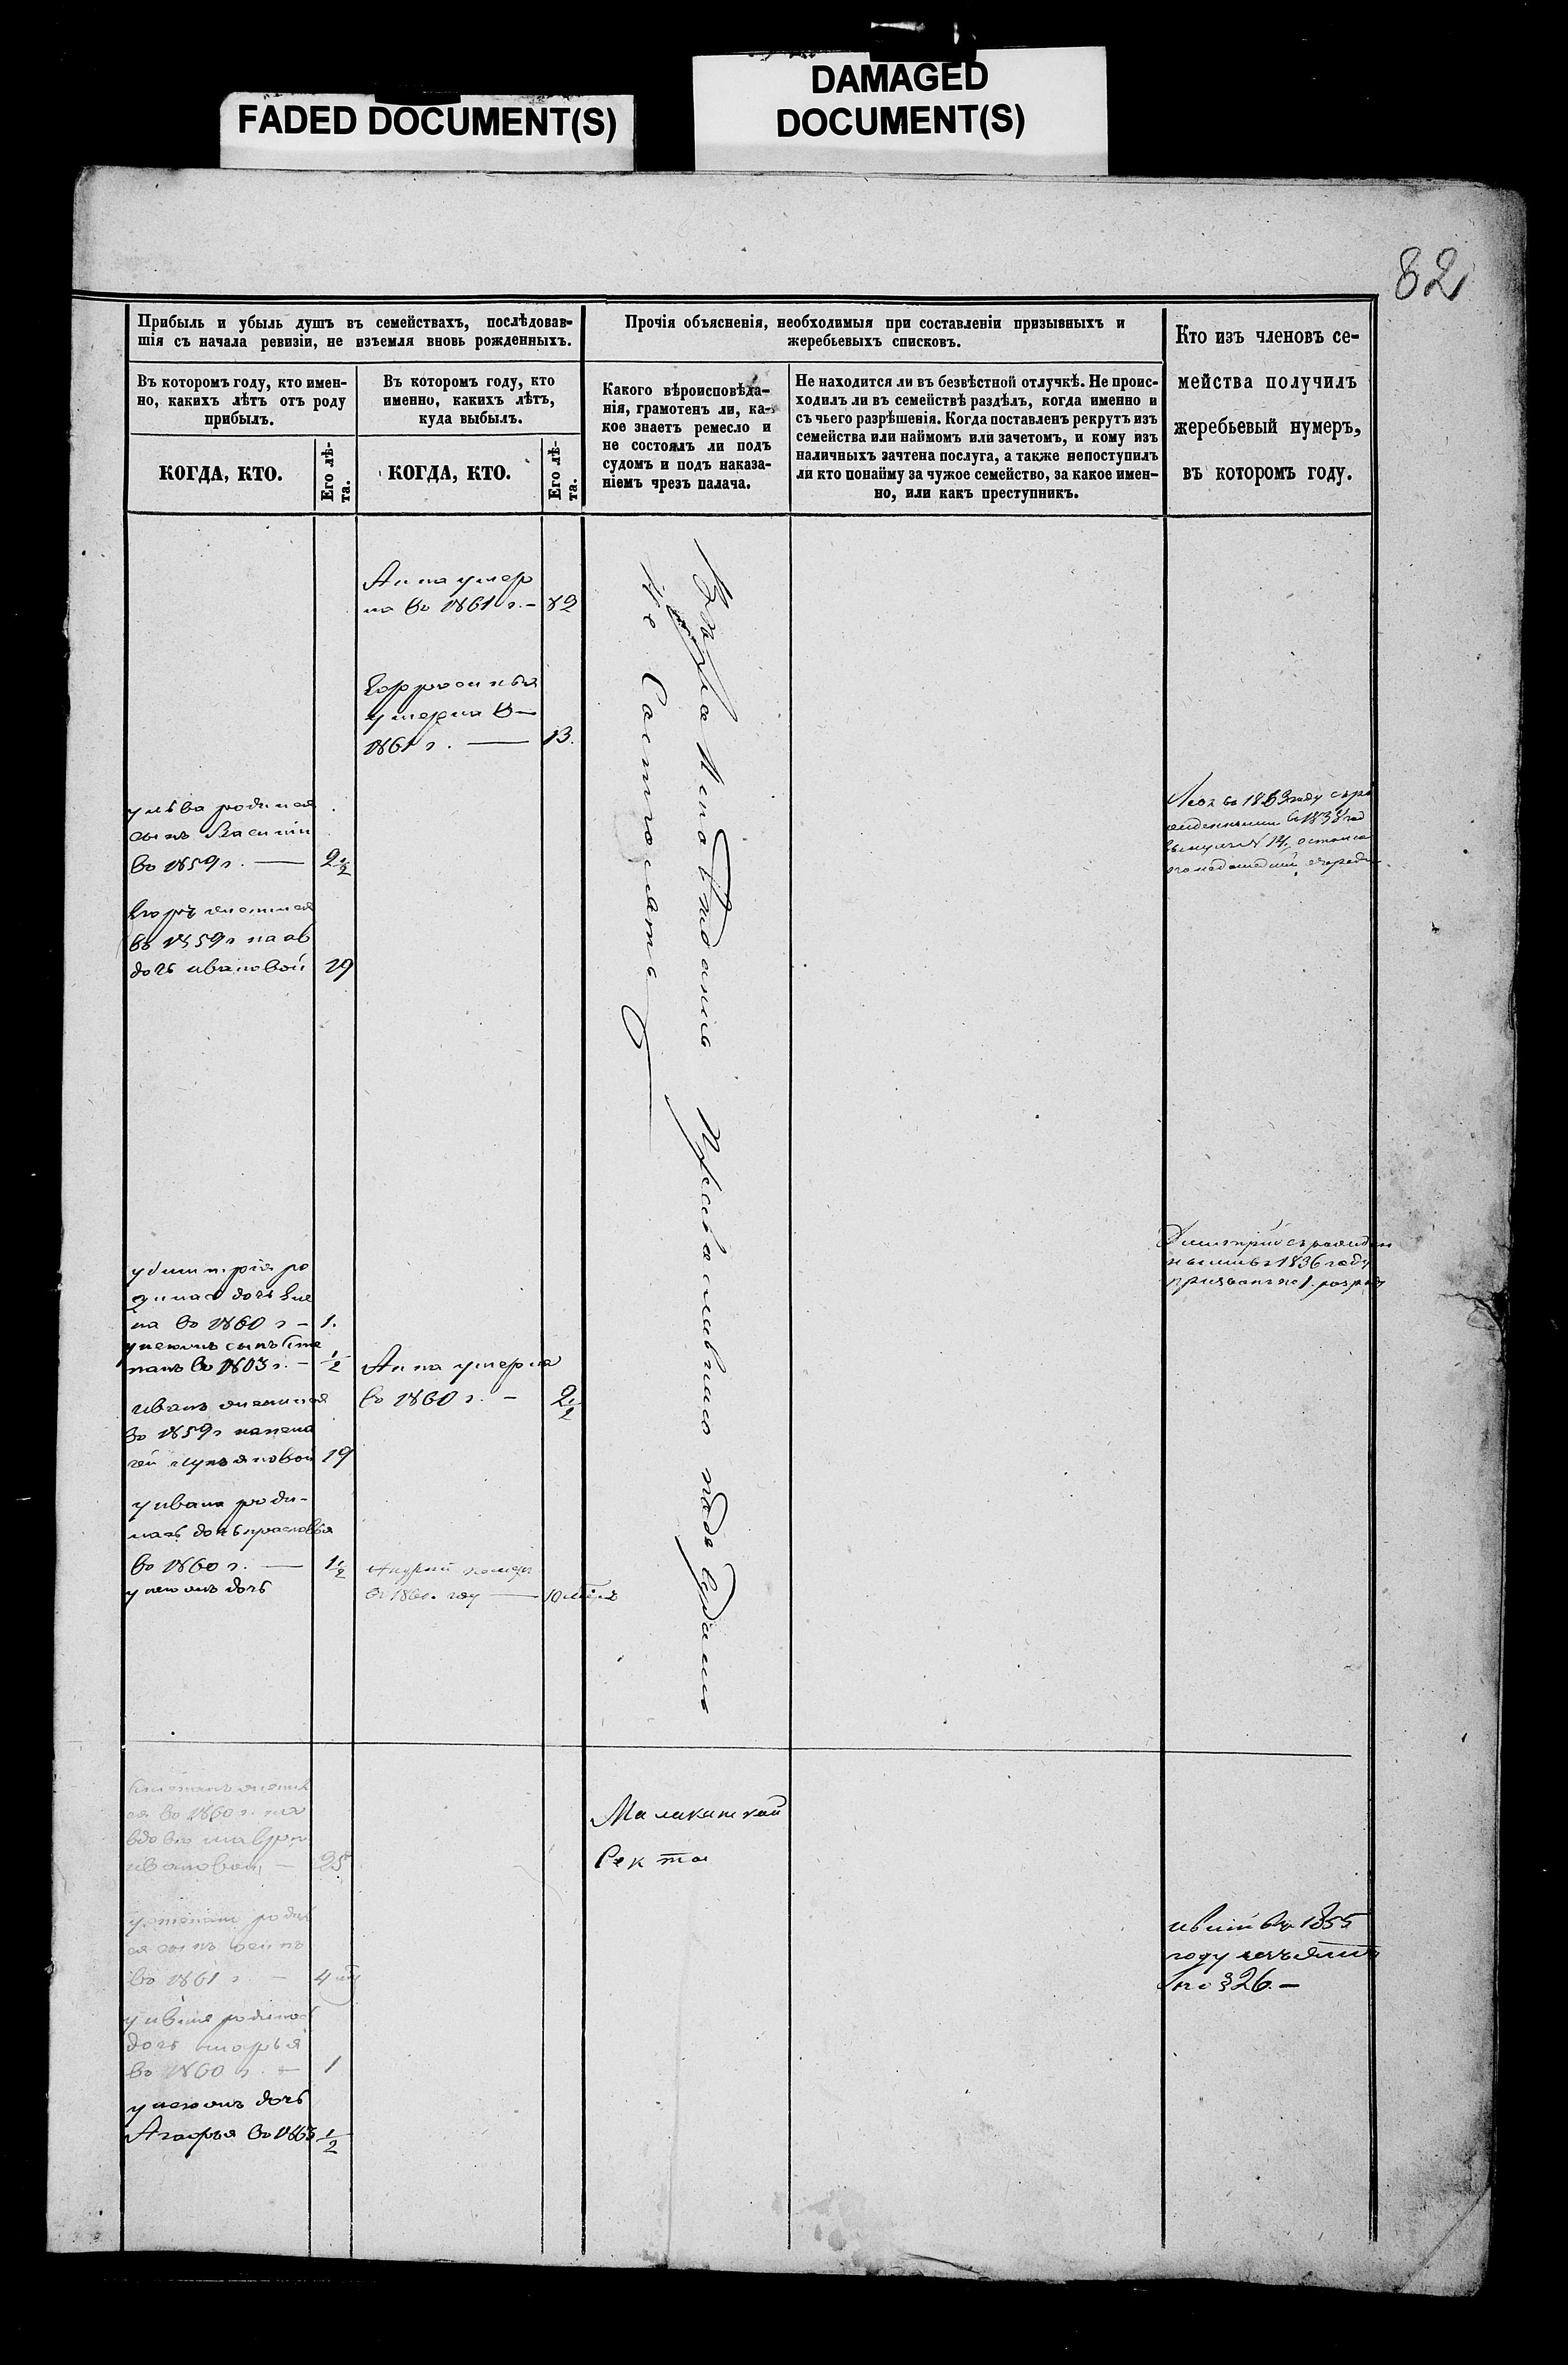 FADED DOCUMENT(S)
DAMAGED
DOCUMENT(S)
82
Прибыль и убыль душъ въ семействахъ, послѣдовав-
шія съ начала ревизіи, не изъемля вновь рожденныхъ.
Прочія объясненія, необходимыя при составленіи призывныхъ и
жеребьевыхъ списковъ.
Кто изъ членовъ се-
мейства получилъ
жеребьевый нумеръ,
въ которомъ году.
Въ которомъ году, кто имен-
но, какихъ лѣтъ отъ роду
прибылъ.
Въ которомъ году, кто
именно, какихъ лѣтъ,
куда выбылъ.
Какого вѣроисповѣда-
нія, грамотенъ ли, ка-
кое знаетъ ремесло и
не состоялъ ли подъ
судомъ и подъ наказа-
ніемъ чрезъ палача.
Не находится ли въ безвѣстной отлучкѣ. Не проис-
ходилъ ли въ семействѣ раздѣлъ, когда именно и
съ чьего разрѣшенія. Когда поставленъ рекрутъ изъ
семейства или наймомъ или зачетомъ, и кому изъ
наличныхъ зачтена послуга, а также непоступилъ
ли кто понайму за чужое семейство, за какое имен-
но, или какъ преступникъ.
КОГДА, КТО.
Его лѣ-
та.
КОГДА, КТО.
Его лѣ-
та.
Анна умер
ла во 1861 г. – 82
умерла в
1861 г. — 13.
у льва родился
сынъ Василий
во 1859 г. — 2½
Егоръ женился
во 1859 г на ав
дот ивановой 19
Вѣра Исповѣданія Православнаго подъ Судомъ
не Состоятъ
въ 1863 году
№ 14,
у димитрія ро
дилась дочь Еле
на во 1860 г – 1.
у него жъ сынъ Сте
панъ во 1863 г. – ½
Анна умерла
во 1860 г. – 2½
иванъ женился
во 1859 г
19
у ивана роди-
лась дочь прасковья
во 1860 г. — 1½
у него жъ дочь
Андрей помер
Димитрій
1836 году
разряд
во 1860 г. на
вдове
ивановой – 25
Малаканской
Секты
родил
ся сынъ
во 1861 г. – 4
родилась
дочь марья
во 1860 г. – 1
у него жъ дочь
Агафья во 1863 ½
въ 1855
году
по § 26. –